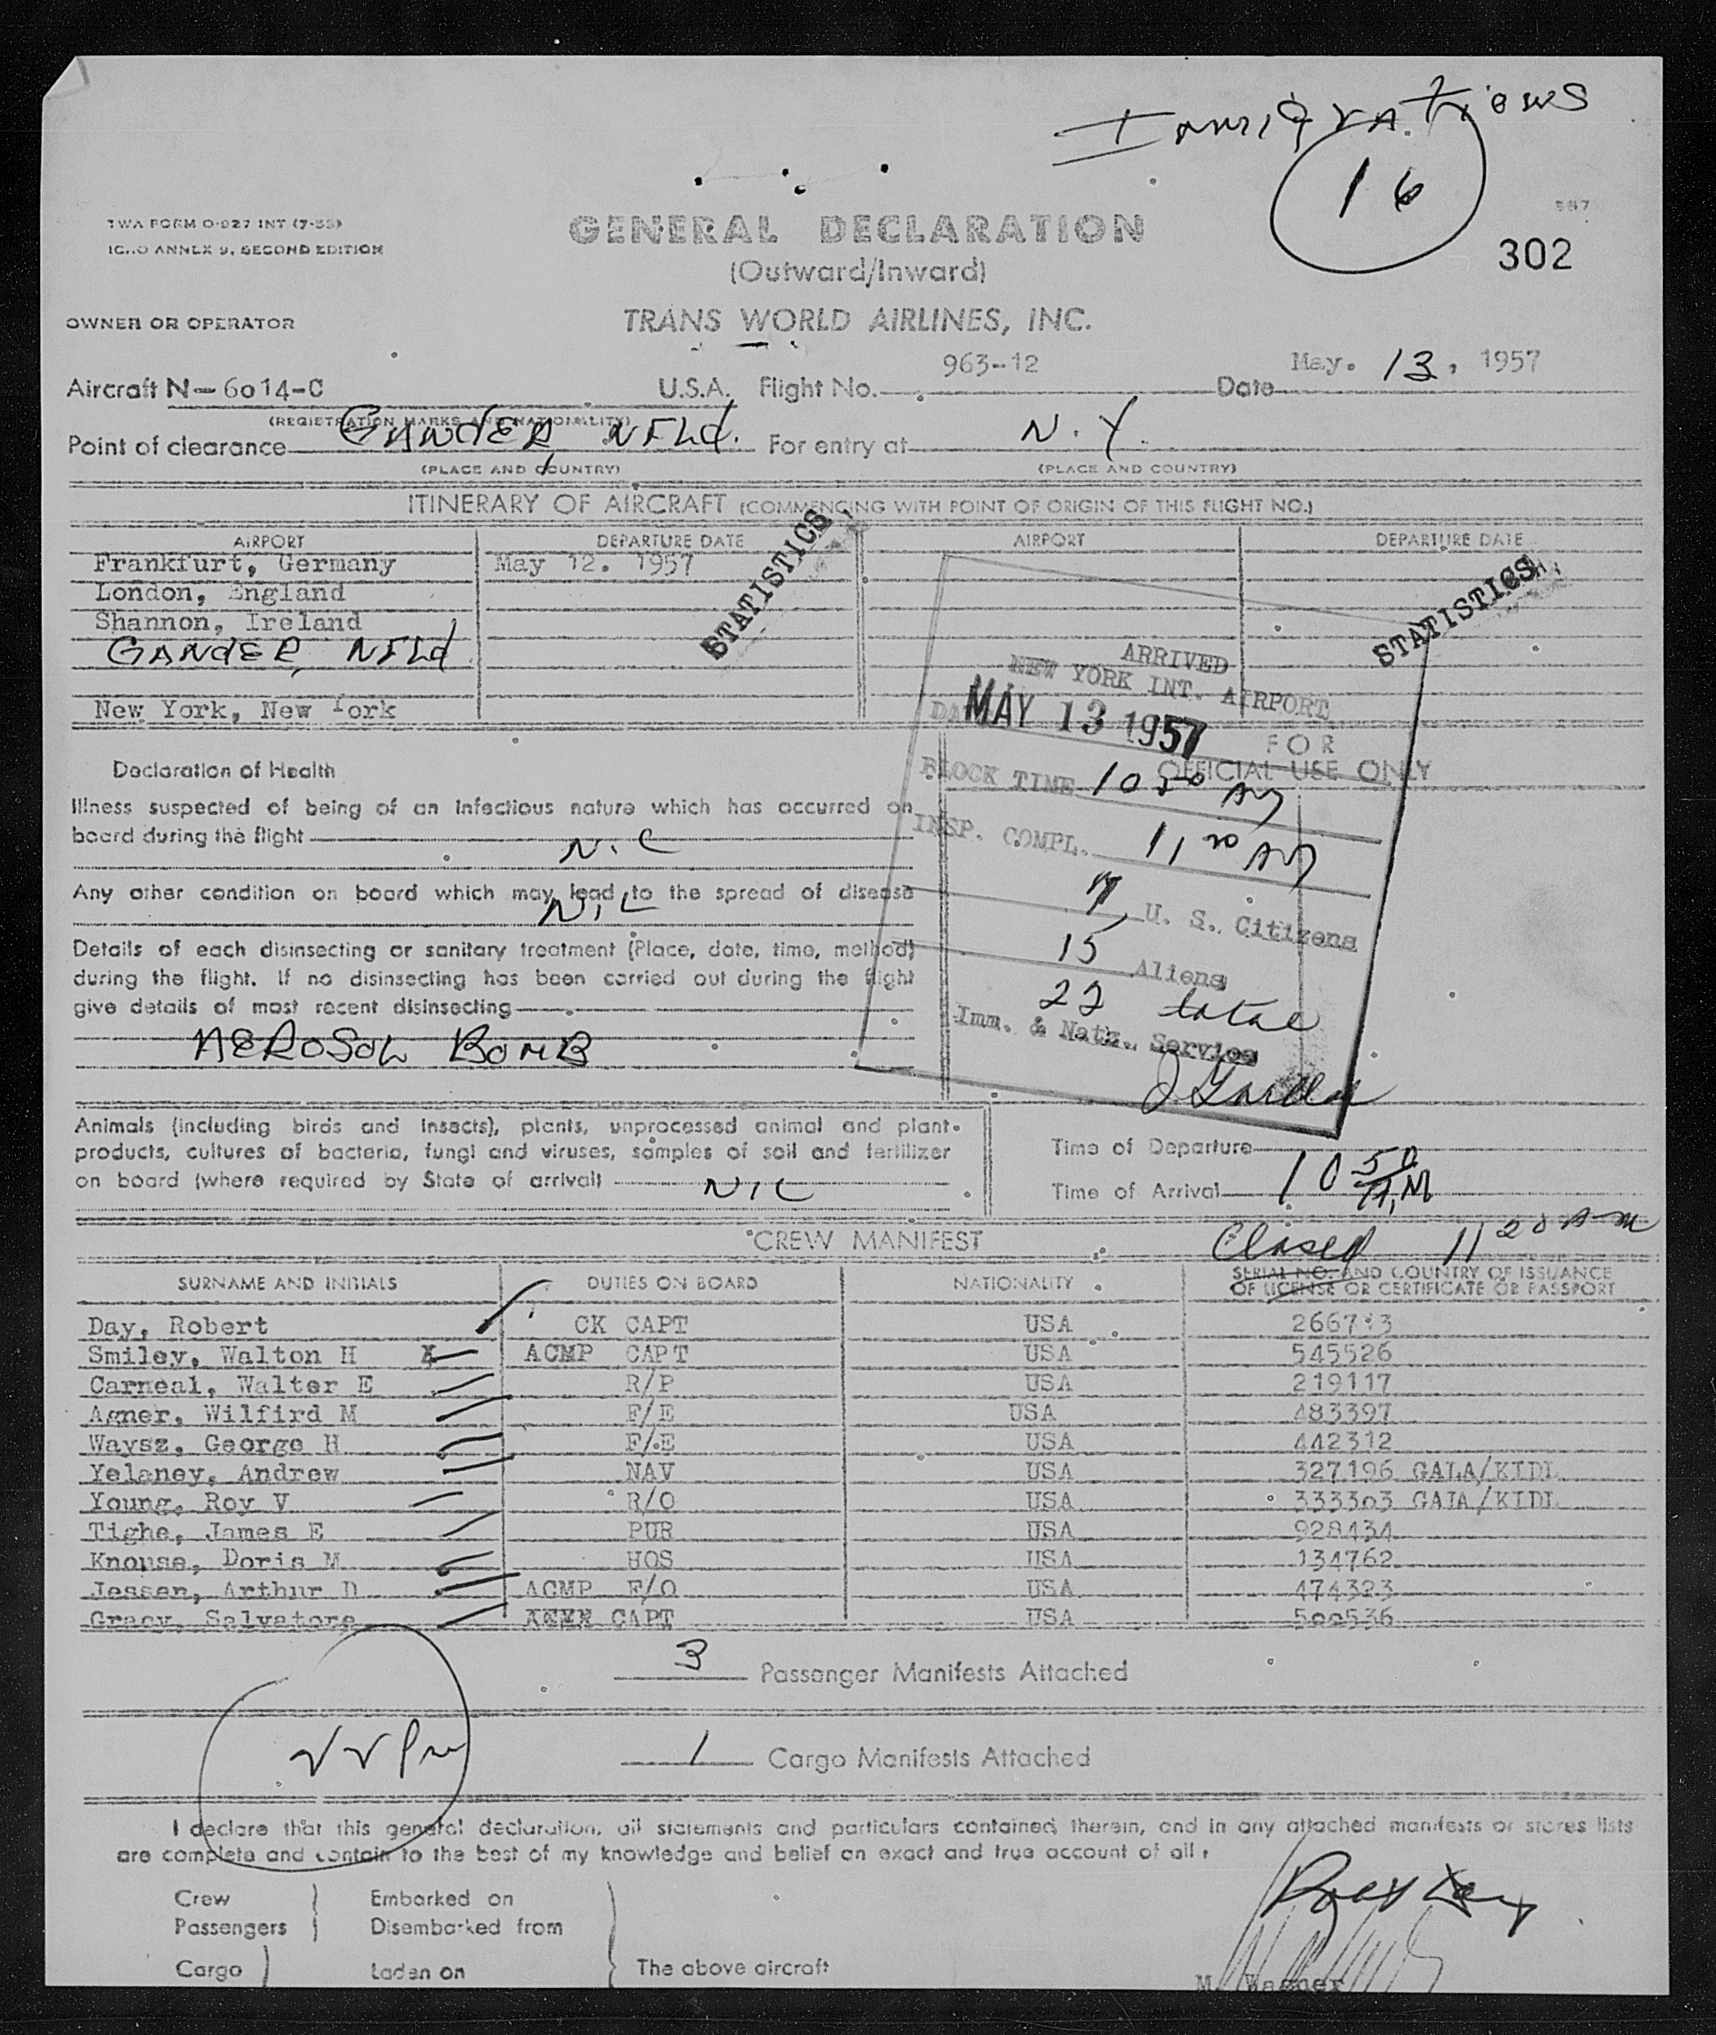 Immigrations
16
TWA FORM O-927 INT (7-55)
ICAO ANNEX 9, SECOND EDITION
GENERAL DECLARATION
(Outward/Inward)
302
OWNER OR OPERATOR
TRANS WORLD AIRLINES, INC.
Aircraft N-6014-C U.S.A. Flight No. 963-12 Date May. 13, 1957
(REGISTRATION MARKS AND NATIONALITY)
Point of clearance GANdER, NFLd. For entry at N.Y.
(PLACE AND COUNTRY) (PLACE AND COUNTRY)
ITINERARY OF AIRCRAFT (COMMENCING WITH POINT OF ORIGIN OF THIS FLIGHT NO.)
AIRPORT DEPARTURE DATE AIRPORT DEPARTURE DATE
Frankfurt, Germany May 12. 1957
London, England
Shannon, Ireland
GANdER, NFLd
New York, New York
STATISTICS
STATISTICS
ARRIVED
NEW YORK INT. AIRPORT
MAY 13 1957
FOR
OFFICIAL USE ONLY
BLOCK TIME 10 50 AM
INSP. COMPL. 11 20 AM
7 U. S. Citizens
15 Aliens
22 total
Imm. & Natz. Service
Declaration of Health
Illness suspected of being of an infectious nature which has occurred on
board during the flight NiL
Any other condition on board which may lead to the spread of disease
NiL
Details of each disinsecting or sanitary treatment (Place, date, time, method)
during the flight. If no disinsecting has been carried out during the flight
give details of most recent disinsecting
AEROSOL BOMB
Animals (including birds and insects), plants, unprocessed animal and plant-
products, cultures of bacteria, fungi and viruses, samples of soil and fertilizer
on board (where required by State of arrival) NIL
Time of Departure
Time of Arrival 10 50 A.M
Closed 11 20 A-M
CREW MANIFEST
SURNAME AND INITIALS DUTIES ON BOARD NATIONALITY SERIAL NO. AND COUNTRY OF ISSUANCE
OF LICENSE OR CERTIFICATE OR PASSPORT
Day, Robert CK CAPT USA
Smiley, Walton H ACMP CAPT USA 545526
Carneal, Walter E R/P USA 219117
Agner, Wilfird M F/E USA 483397
Waysz, George H F/E USA 442312
Yelaney, Andrew NAV USA 327196
Young, Roy V R/O USA 333303
Tighe, James E PUR USA 928434
Knouse, Doris M HOS USA 134762
Jessen, Arthur D ACMP F/O USA 474323
Gracy, Salvatore CAPT USA 500536
3 Passenger Manifests Attached
1 Cargo Manifests Attached
I declare that this general declaration, all statements and particulars contained therein, and in any attached manifests or stores lists
are complete and contain to the best of my knowledge and belief an exact and true account of all:
Crew Embarked on
Passengers Disembarked from
Cargo Laden on The above aircraft
M. Wagner